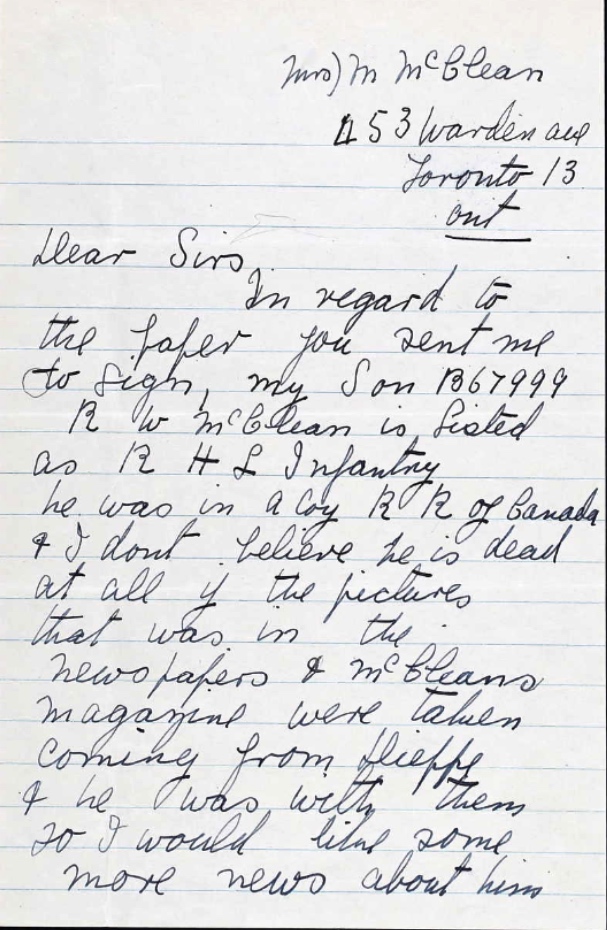 Mrs) M McClean
453 Warden ave
Toronto 13
ont
Dear Sirs
In regard to
the paper you sent me
to sign, my Son B67999
R W McClean is listed
as R H L Infantry
he was in A Coy R R of Canada
& I dont believe he is dead
at all if the pictures
that was in the
newspapers & McCleans
magazine were taken
coming from Dieppe
& he was with them
so I would like some
more news about him